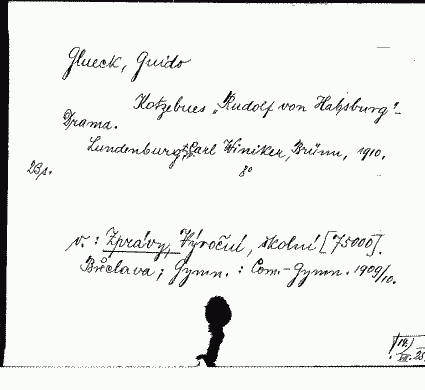 Glueck, Guido
Kotzebues „Rudolf von Habsburg"-
Drama.
Lundenburg, Carl Winiker, Brünn, 1910.
23s. 8°
v.: Zprávy, Výroční, školní [75000].
Břeclava; Gymn.: Com.-Gymn. 1909/10.